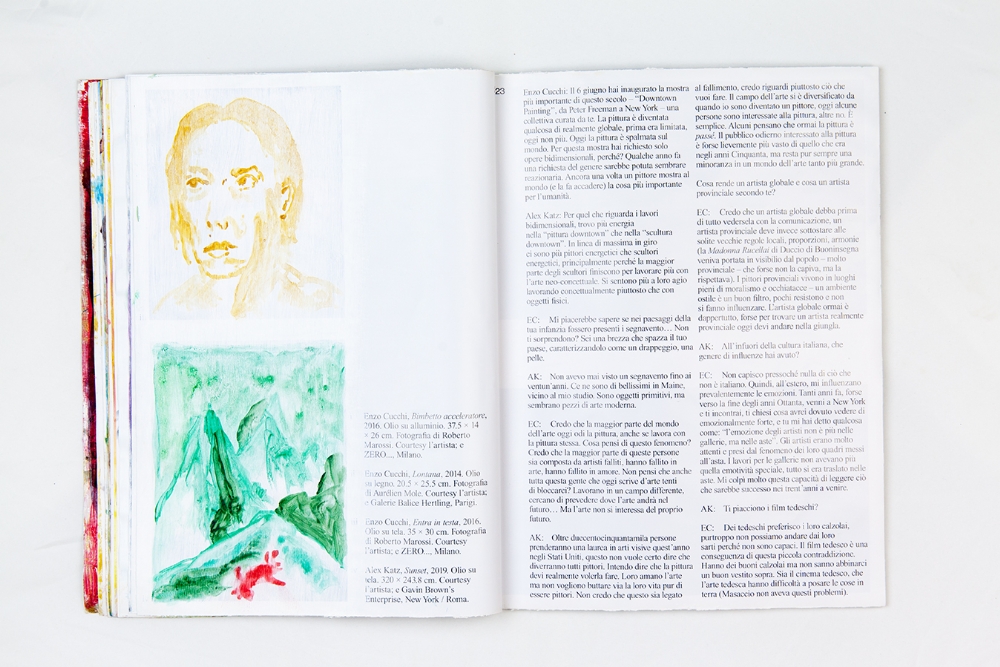 Enzo Cucchi, Bimbetto acceleratore,
2016. Olio su alluminio. 37.5 × 14
× 26 cm. Fotografia di Roberto
Marossi. Courtesy l'artista; e
ZERO..., Milano.
Enzo Cucchi, Lontana, 2014. Olio
su legno. 20.5 × 25.5 cm. Fotografia
di Aurélien Mole. Courtesy l'artista;
e Galerie Balice Hertling, Parigi.
Enzo Cucchi, Entra in testa, 2016.
Olio su tela. 35 × 30 cm. Fotografia
di Roberto Marossi. Courtesy
l'artista; e ZERO..., Milano.
Alex Katz, Sunset, 2019. Olio su
tela. 320 × 243.8 cm. Courtesy
l'artista; e Gavin Brown's
Enterprise, New York / Roma.
23
Enzo Cucchi: Il 6 giugno hai inaugurato la mostra
più importante di questo secolo – “Downtown
Painting”, da Peter Freeman a New York – una
collettiva curata da te. La pittura è diventata
qualcosa di realmente globale, prima era limitata,
oggi non più. Oggi la pittura è spalmata sul
mondo. Per questa mostra hai richiesto solo
opere bidimensionali, perché? Qualche anno fa
una richiesta del genere sarebbe potuta sembrare
reazionaria. Ancora una volta un pittore mostra al
mondo (e la fa accadere) la cosa più importante
per l'umanità.
Alex Katz: Per quel che riguarda i lavori
bidimensionali, trovo più energia
nella “pittura downtown” che nella “scultura
downtown”. In linea di massima in giro
ci sono più pittori energetici che scultori
energetici, principalmente perché la maggior
parte degli scultori finiscono per lavorare più con
l'arte neo-concettuale. Si sentono più a loro agio
lavorando concettualmente piuttosto che con
oggetti fisici.
EC: Mi piacerebbe sapere se nei paesaggi della
tua infanzia fossero presenti i segnavento… Non
ti sorprendono? Sei una brezza che spazza il tuo
paese, caratterizzandolo come un drappeggio, una
pelle.
AK: Non avevo mai visto un segnavento fino ai
ventun'anni. Ce ne sono di bellissimi in Maine,
vicino al mio studio. Sono oggetti primitivi, ma
sembrano pezzi di arte moderna.
EC: Credo che la maggior parte del mondo
dell'arte oggi odi la pittura, anche se lavora con
la pittura stessa. Cosa pensi di questo fenomeno?
Credo che la maggior parte di queste persone
sia composta da artisti falliti, hanno fallito in
arte, hanno fallito in amore. Non pensi che anche
tutta questa gente che oggi scrive d'arte tenti
di bloccarci? Lavorano in un campo differente,
cercano di prevedere dove l'arte andrà nel
futuro… Ma l'arte non si interessa del proprio
futuro.
AK: Oltre duccentocinquantamila persone
prenderanno una laurea in arti visive quest'anno
negli Stati Uniti, questo non vuole certo dire che
diverranno tutti pittori. Intendo dire che la pittura
devi realmente volerla fare. Loro amano l'arte
ma non vogliono buttare via la loro vita pur di
essere pittori. Non credo che questo sia legato
al fallimento, credo riguardi piuttosto ciò che
vuoi fare. Il campo dell'arte si è diversificato da
quando io sono diventato un pittore, oggi alcune
persone sono interessate alla pittura, altre no. È
semplice. Alcuni pensano che ormai la pittura è
passé. Il pubblico odierno interessato alla pittura
è forse lievemente più vasto di quello che era
negli anni Cinquanta, ma resta pur sempre una
minoranza in un mondo dell'arte tanto più grande.
Cosa rende un artista globale e cosa un artista
provinciale secondo te?
EC: Credo che un artista globale debba prima
di tutto vedersela con la comunicazione, un
artista provinciale deve invece sottostare alle
solite vecchie regole locali, proporzioni, armonie
(la Madonna Rucellai di Duccio di Buoninsegna
veniva portata in visibilio dal popolo – molto
provinciale – che forse non la capiva, ma la
rispettava). I pittori provinciali vivono in luoghi
pieni di moralismo e occhiatacce – un ambiente
ostile è un buon filtro, pochi resistono e non
si fanno influenzare. L'artista globale ormai è
dappertutto, forse per trovare un artista realmente
provinciale oggi devi andare nella giungla.
AK: All'infuori della cultura italiana, che
genere di influenze hai avuto?
EC: Non capisco pressoché nulla di ciò che
non è italiano. Quindi, all'estero, mi influenzano
prevalentemente le emozioni. Tanti anni fa, forse
verso la fine degli anni Ottanta, venni a New York
e ti incontrai, ti chiesi cosa avrei dovuto vedere di
emozionalmente forte, e tu mi hai detto qualcosa
come: “l'emozione degli artisti non è più nelle
gallerie, ma nelle aste”. Gli artisti erano molto
attenti e presi dal fenomeno dei loro quadri messi
all'asta. I lavori per le gallerie non avevano più
quella emotività speciale, tutto si era traslato nelle
aste. Mi colpì molto questa capacità di leggere ciò
che sarebbe successo nei trent'anni a venire.
AK: Ti piacciono i film tedeschi?
EC: Dei tedeschi preferisco i loro calzolai,
purtroppo non possiamo andare dai loro
sarti perché non sono capaci. Il film tedesco è una
conseguenza di questa piccola contraddizione.
Hanno dei buoni calzolai ma non sanno abbinarci
un buon vestito sopra. Sia il cinema tedesco, che
l'arte tedesca hanno difficoltà a posare le cose in
terra (Masaccio non aveva questi problemi).